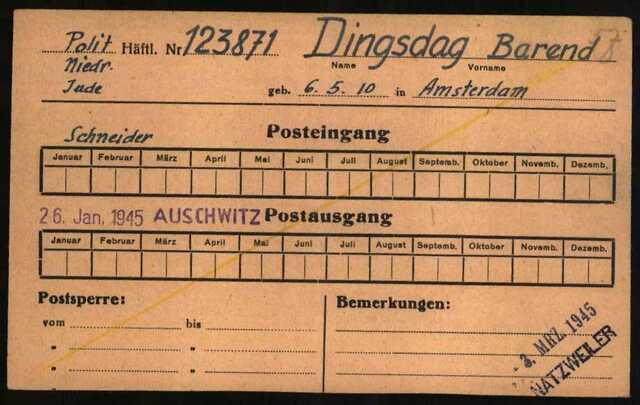 Polit Häftl. Nr 123871 Dingsdag Barend
Niedr. Name Vorname
Jude geb. 6.5.10 in Amsterdam
Schneider Posteingang
Januar Februar März April Mai Juni Juli August Septemb. Oktober Novemb. Dezemb.
26. Jan. 1945 AUSCHWITZ Postausgang
Januar Februar März April Mai Juni Juli August Septemb. Oktober Novemb. Dezemb.
Postsperre: Bemerkungen:
vom bis
" "
" "
3. MRZ. 1945
NATZWEILER